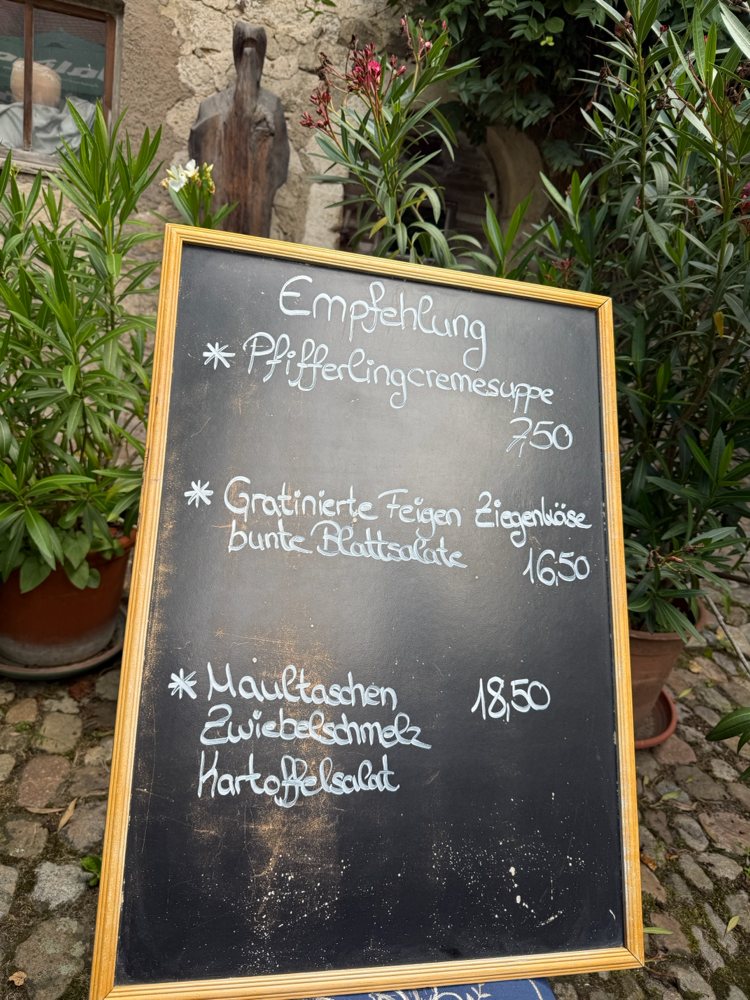 Empfehlung
* Pfifferlingcremesuppe
7,50
* Gratinierte Feigen Ziegenkäse
bunte Blattsalate 16,50
* Maultaschen 18,50
Zwiebelschmelz
Kartoffelsalat